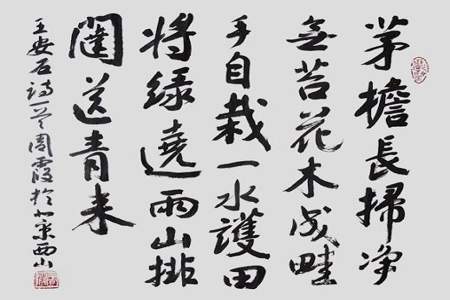 茅檐長掃净
無苔花木成畦
手自栽一水護田
将緑遶兩山排
闥送青来
王安石詩一首周霞於北京西山